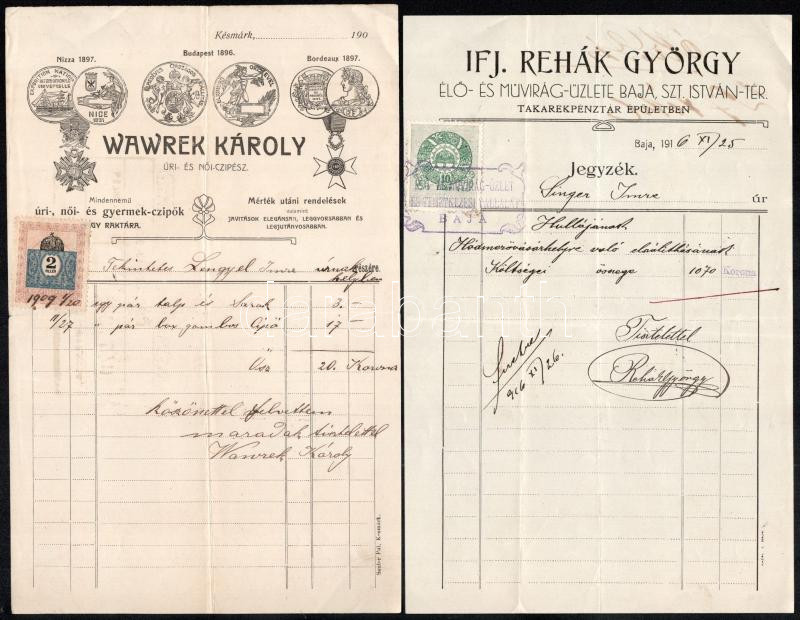 Késmárk, 190
Nizza 1897.
Budapest 1896.
Bordeaux 1897.
NICE
WAWREK KÁROLY
ÚRI- ÉS NŐI-CZIPÉSZ.
Mindennemű
úri-, női- és gyermek-czipők
GY RAKTÁRA.
Mérték utáni rendelések
valamint
JAVÍTÁSOK ELEGÁNSAN, LEGGYORSABBAN ÉS
LEGJUTÁNYOSABBAN.
2
FILLÉR
1909
Tekintetes Lengyel Imre úrnak részére.
helyben
egy pár talp és Sarok 3. —
11/27 " pár box gombos Cipő 17 —
Ösz 20. Korona
köszönettel felvettem
maradok tisztelettel
Wawrek Károly
Sauter Pál, Késmárk.
IFJ. REHÁK GYÖRGY
ÉLŐ- ÉS MŰVIRÁG-ÜZLETE BAJA, SZT. ISTVÁN-TÉR.
TAKARÉKPÉNZTÁR ÉPÜLETBEN
Baja, 1916 XI/25
10
BAJA
Jegyzék.
Singer Imre úr
Hullájának
Hódmezővásárhelyre való elszállításának
Költségei összege 1070 Korona
Tisztelettel
Rehák György
916 XI/26.
darabanth